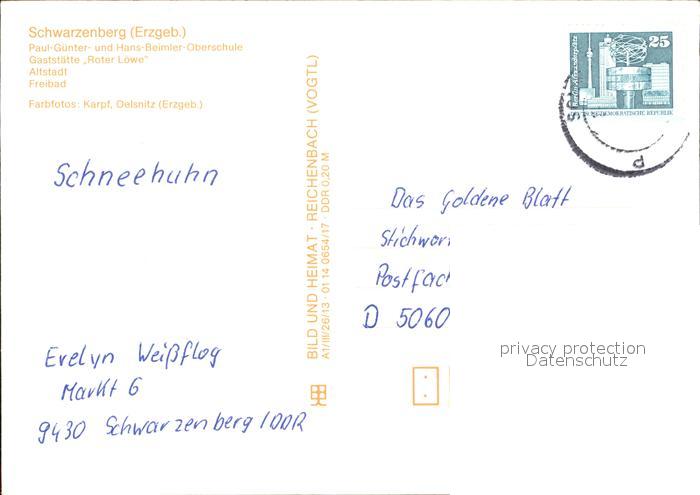 Schwarzenberg (Erzgeb.)
Paul-Günter- und Hans-Beimler-Oberschule
Gaststätte „Roter Löwe"
Altstadt
Freibad
Farbfotos: Karpf, Oelsnitz (Erzgeb.)
Schneehuhn
Evelyn Weißflog
Markt 6
9430 Schwarzenberg/DDR
BILD UND HEIMAT · REICHENBACH (VOGTL)
A1/III/26/13 · 01 14 0654/17 · DDR 0,20 M
25
Berlin, Alexanderplatz
DEMOKRATISCHE REPUBLIK
Das Goldene Blatt
Stichwor
Postfach
D 5060
privacy protection
Datenschutz